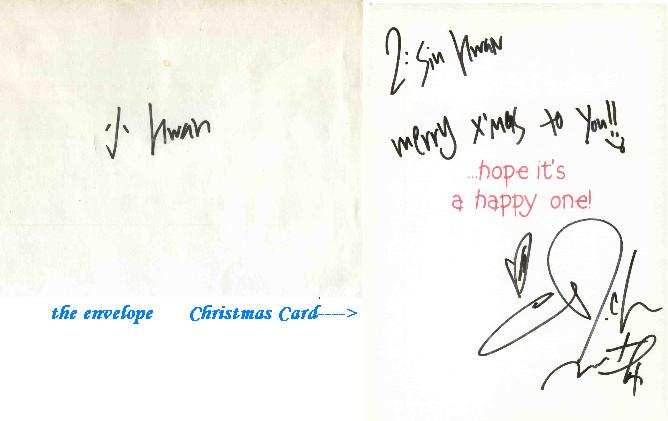 小 Kwan
the envelope Christmas Card---->
2: Siu Kwan
merry X'mas to You!!
...hope it's
a happy one!